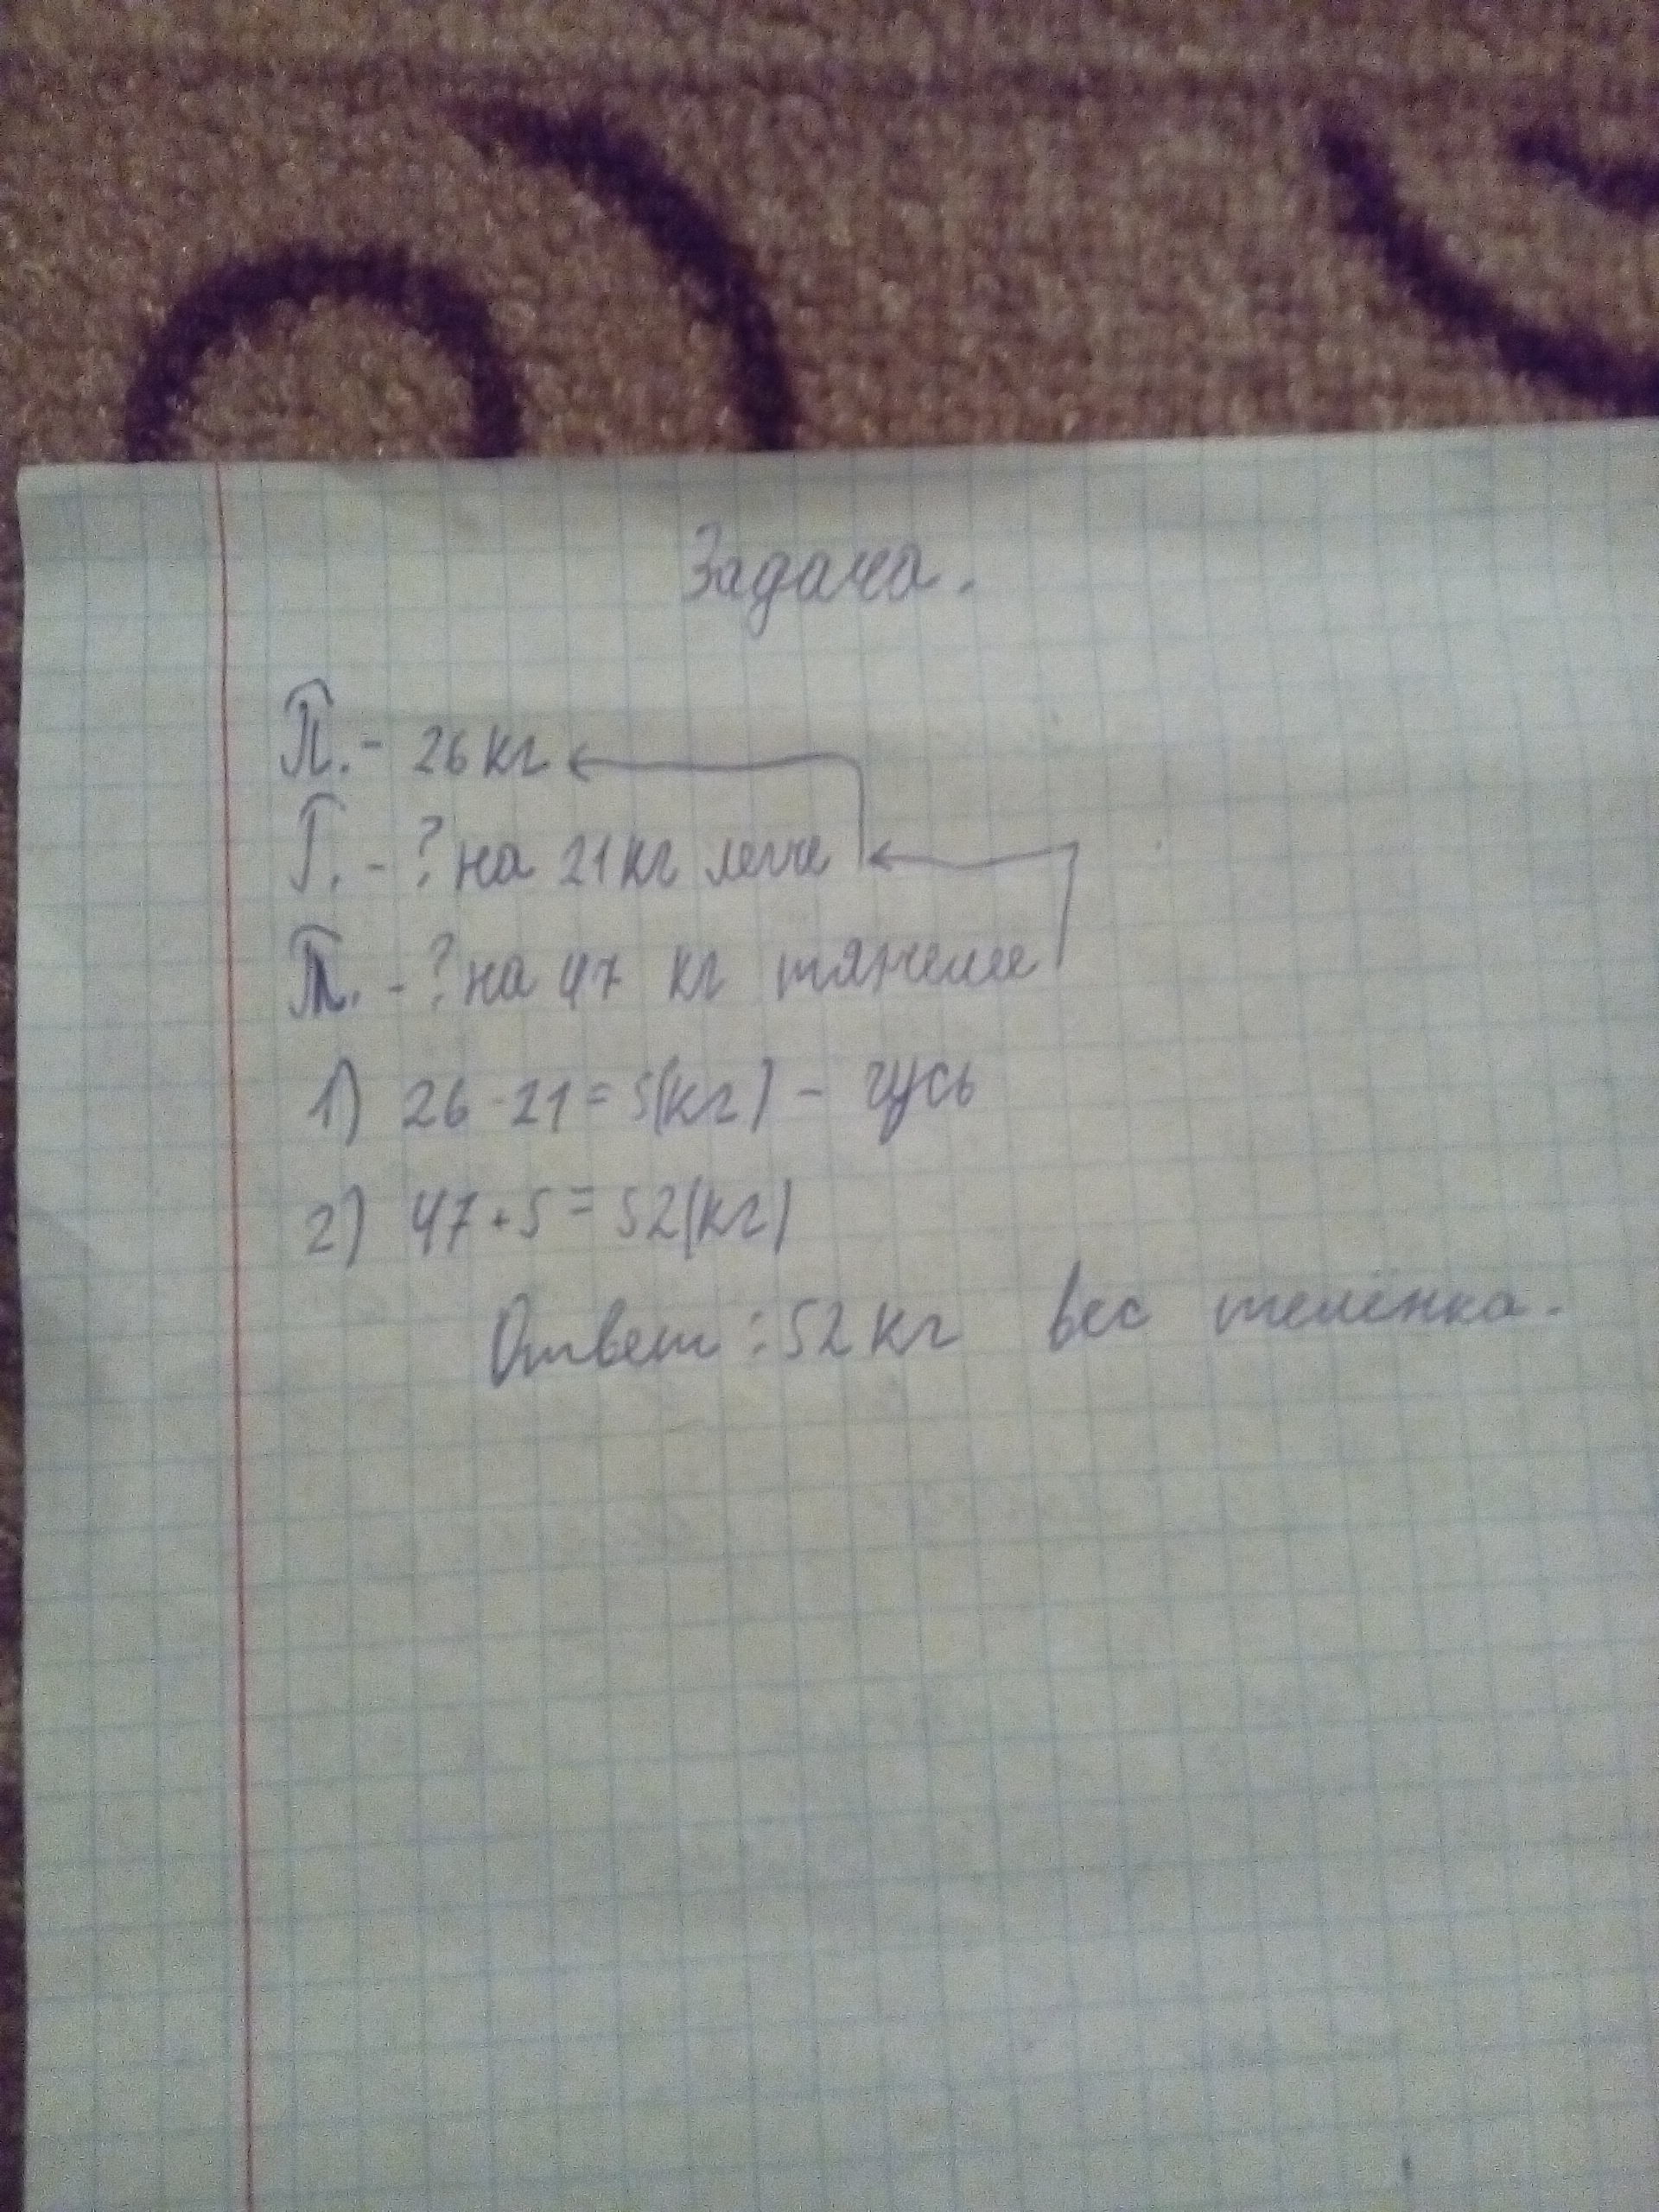 Задача.
П. - 26 кг
Г. - ? на 21 кг легче
Т. - ? на 47 кг тяжелее
1) 26 - 21 = 5(кг) - гусь
2) 47 + 5 = 52(кг)
Ответ : 52 кг вес телёнка.